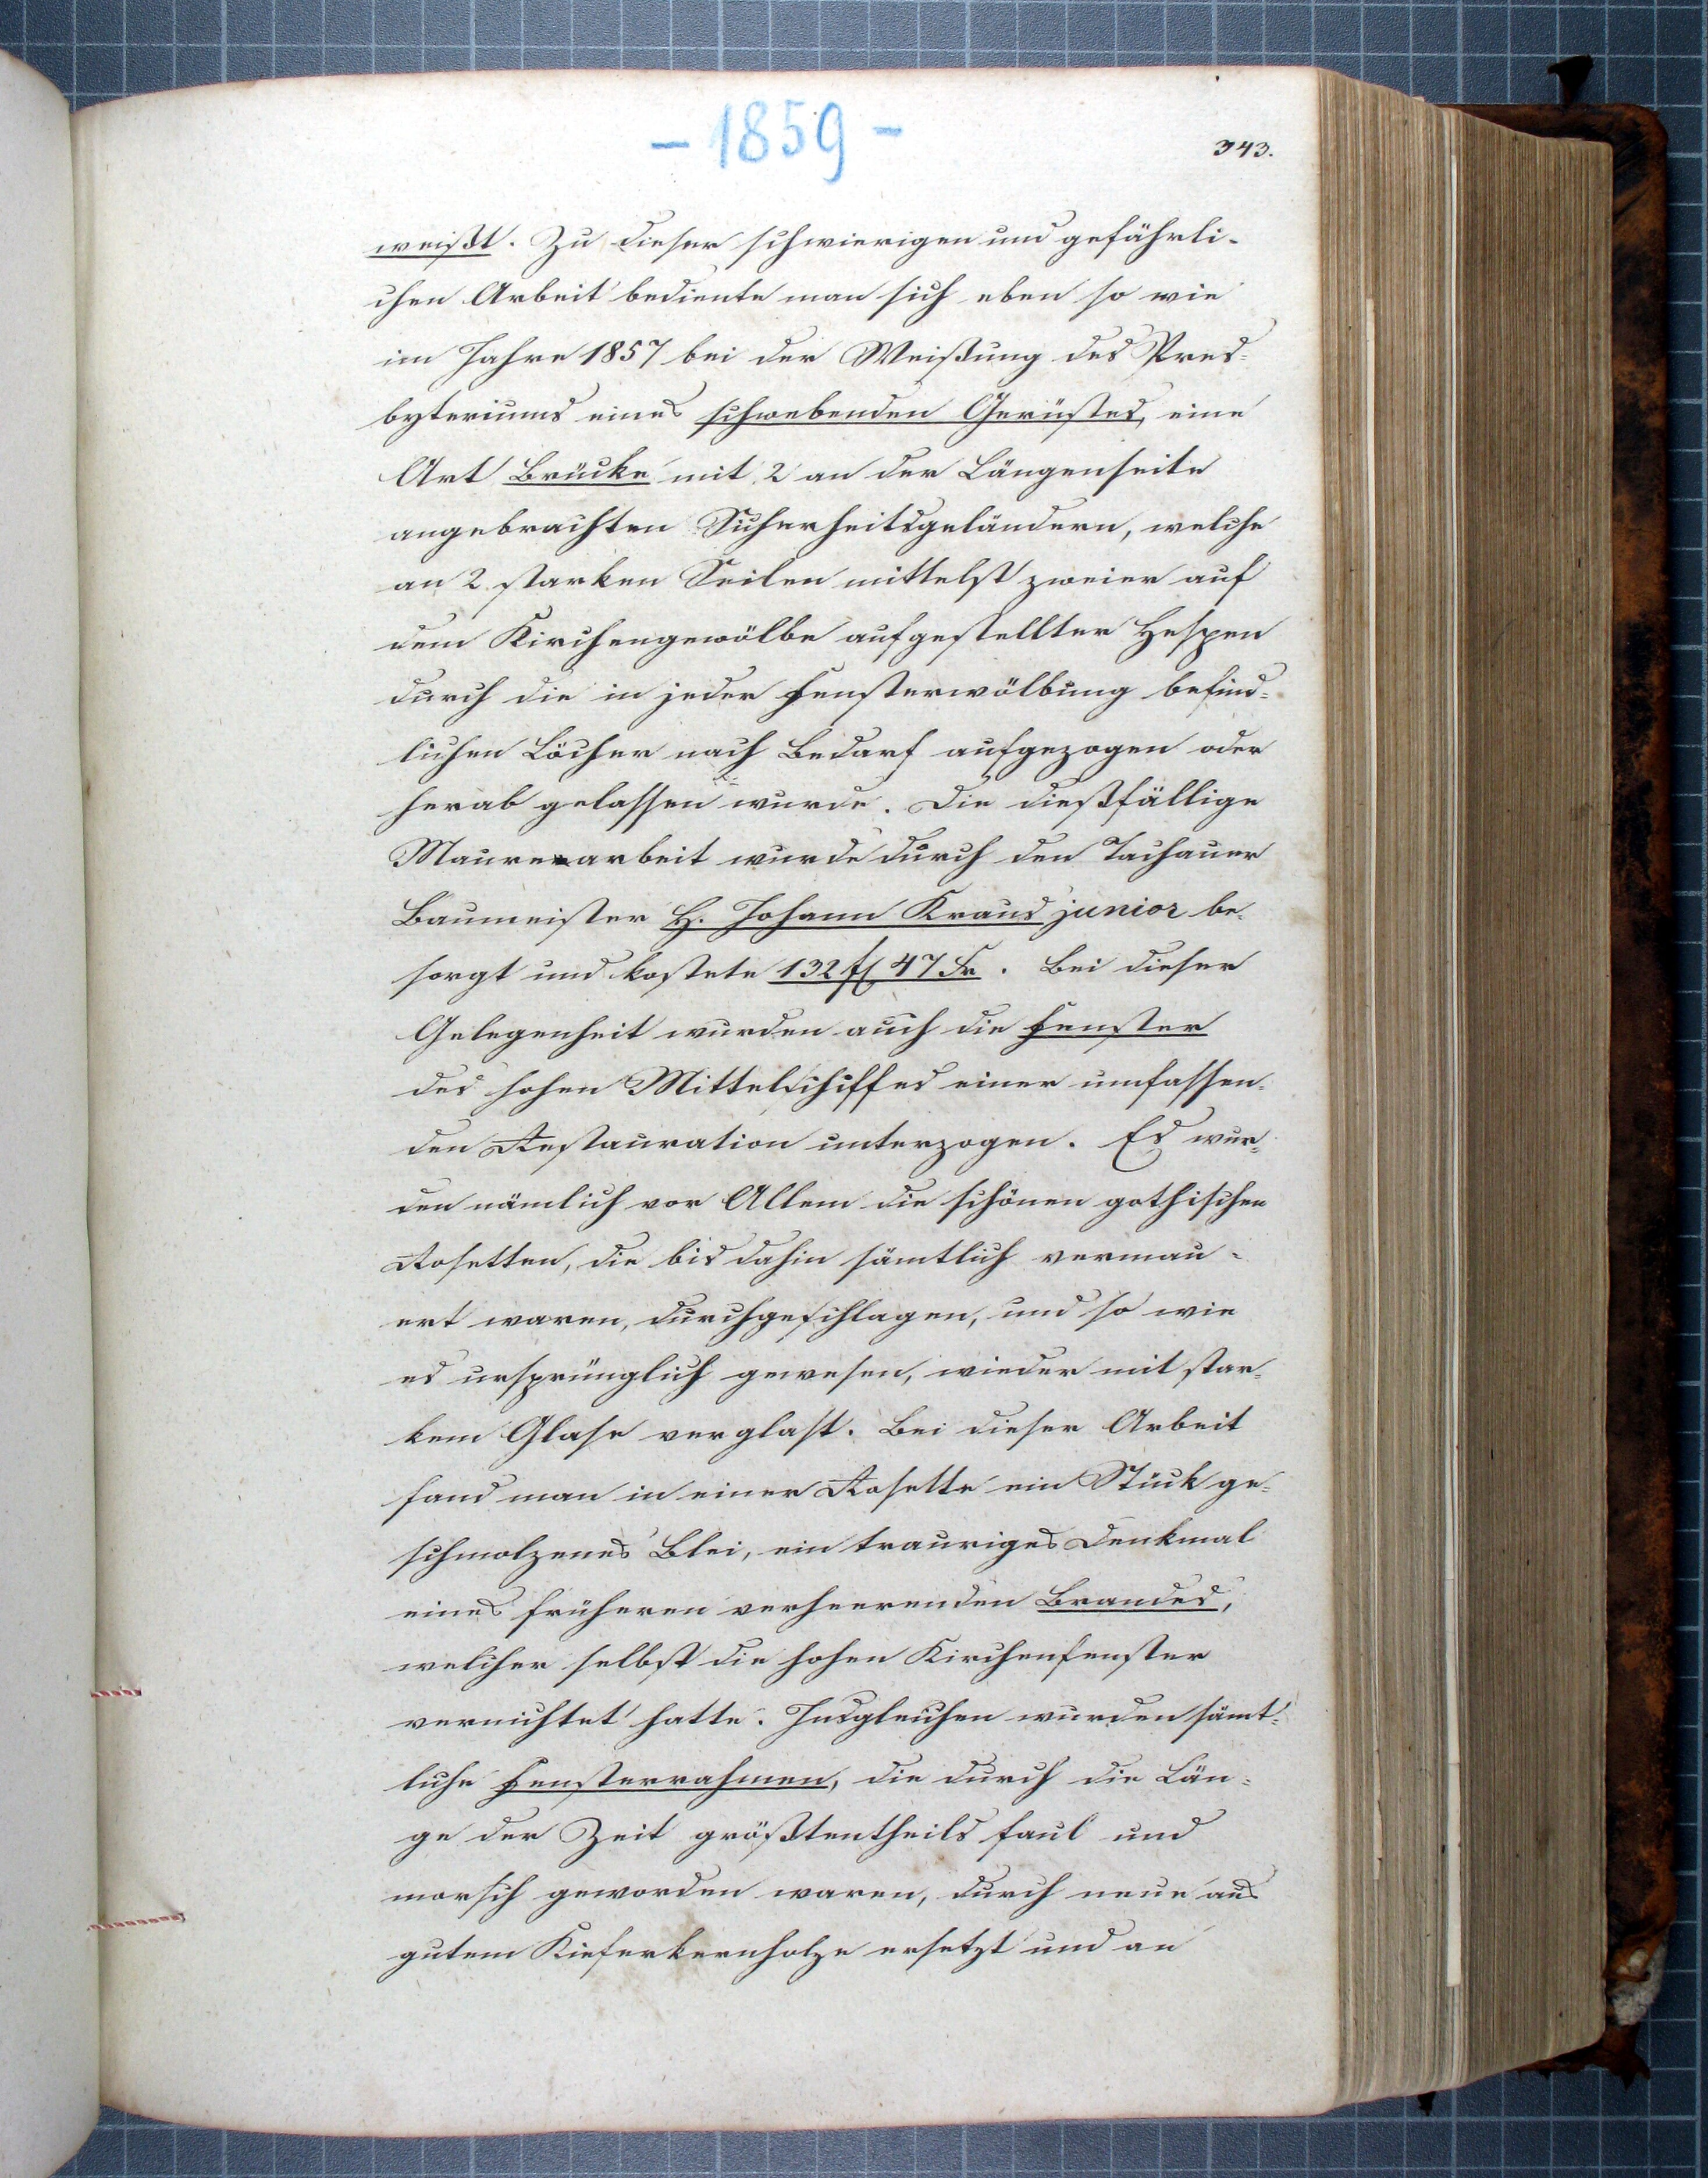 - 1859 -
343.
weißt. Zu dieser schwierigen und gefährli-
chen Arbeit bediente man sich eben so wie
im Jahre 1857 bei der Weißung des Pres-
byteriums eines schwebenden Gerüstes, eine
Art Brücke mit 2 an der Längenseite
angebrachten Sicherheitsgeländern, welche
an 2 starken Seilen mittelst zweier auf
dem Kirchengewölbe aufgestellter Hespen
durch die in jeder Fensterwölbung befind-
lichen Löcher nach Bedarf aufgezogen oder
herab gelassen wurde. Die dießfällige
Maurerarbeit wurde durch den Tachauer
Baumeister H. Johann Kraus junior be-
sorgt und kostete 132 fl 47 Kr. Bei dieser
Gelegenheit wurden auch die Fenster
des hohen Mittelschiffes einer umfassen-
den Restauration unterzogen. Es wur-
den nämlich vor Allem die schönen gothischen
Rosetten, die bis dahin sämtlich vermau-
ert waren, durchgeschlagen, und so wie
es ursprünglich gewesen, wieder mit star-
kem Glase verglast. Bei dieser Arbeit
fand man in einer Rosette ein Stück ge-
schmolzenes Blei, ein trauriges Denkmal
eines früheren verheerenden Brandes,
welcher selbst die hohen Kirchenfenster
vernichtet hatte. Insgleichen wurden sämt-
liche Fensterrahmen, die durch die Län-
ge der Zeit größtentheils faul und
morsch geworden waren, durch neue aus
gutem Kieferkernholze ersetzt und an